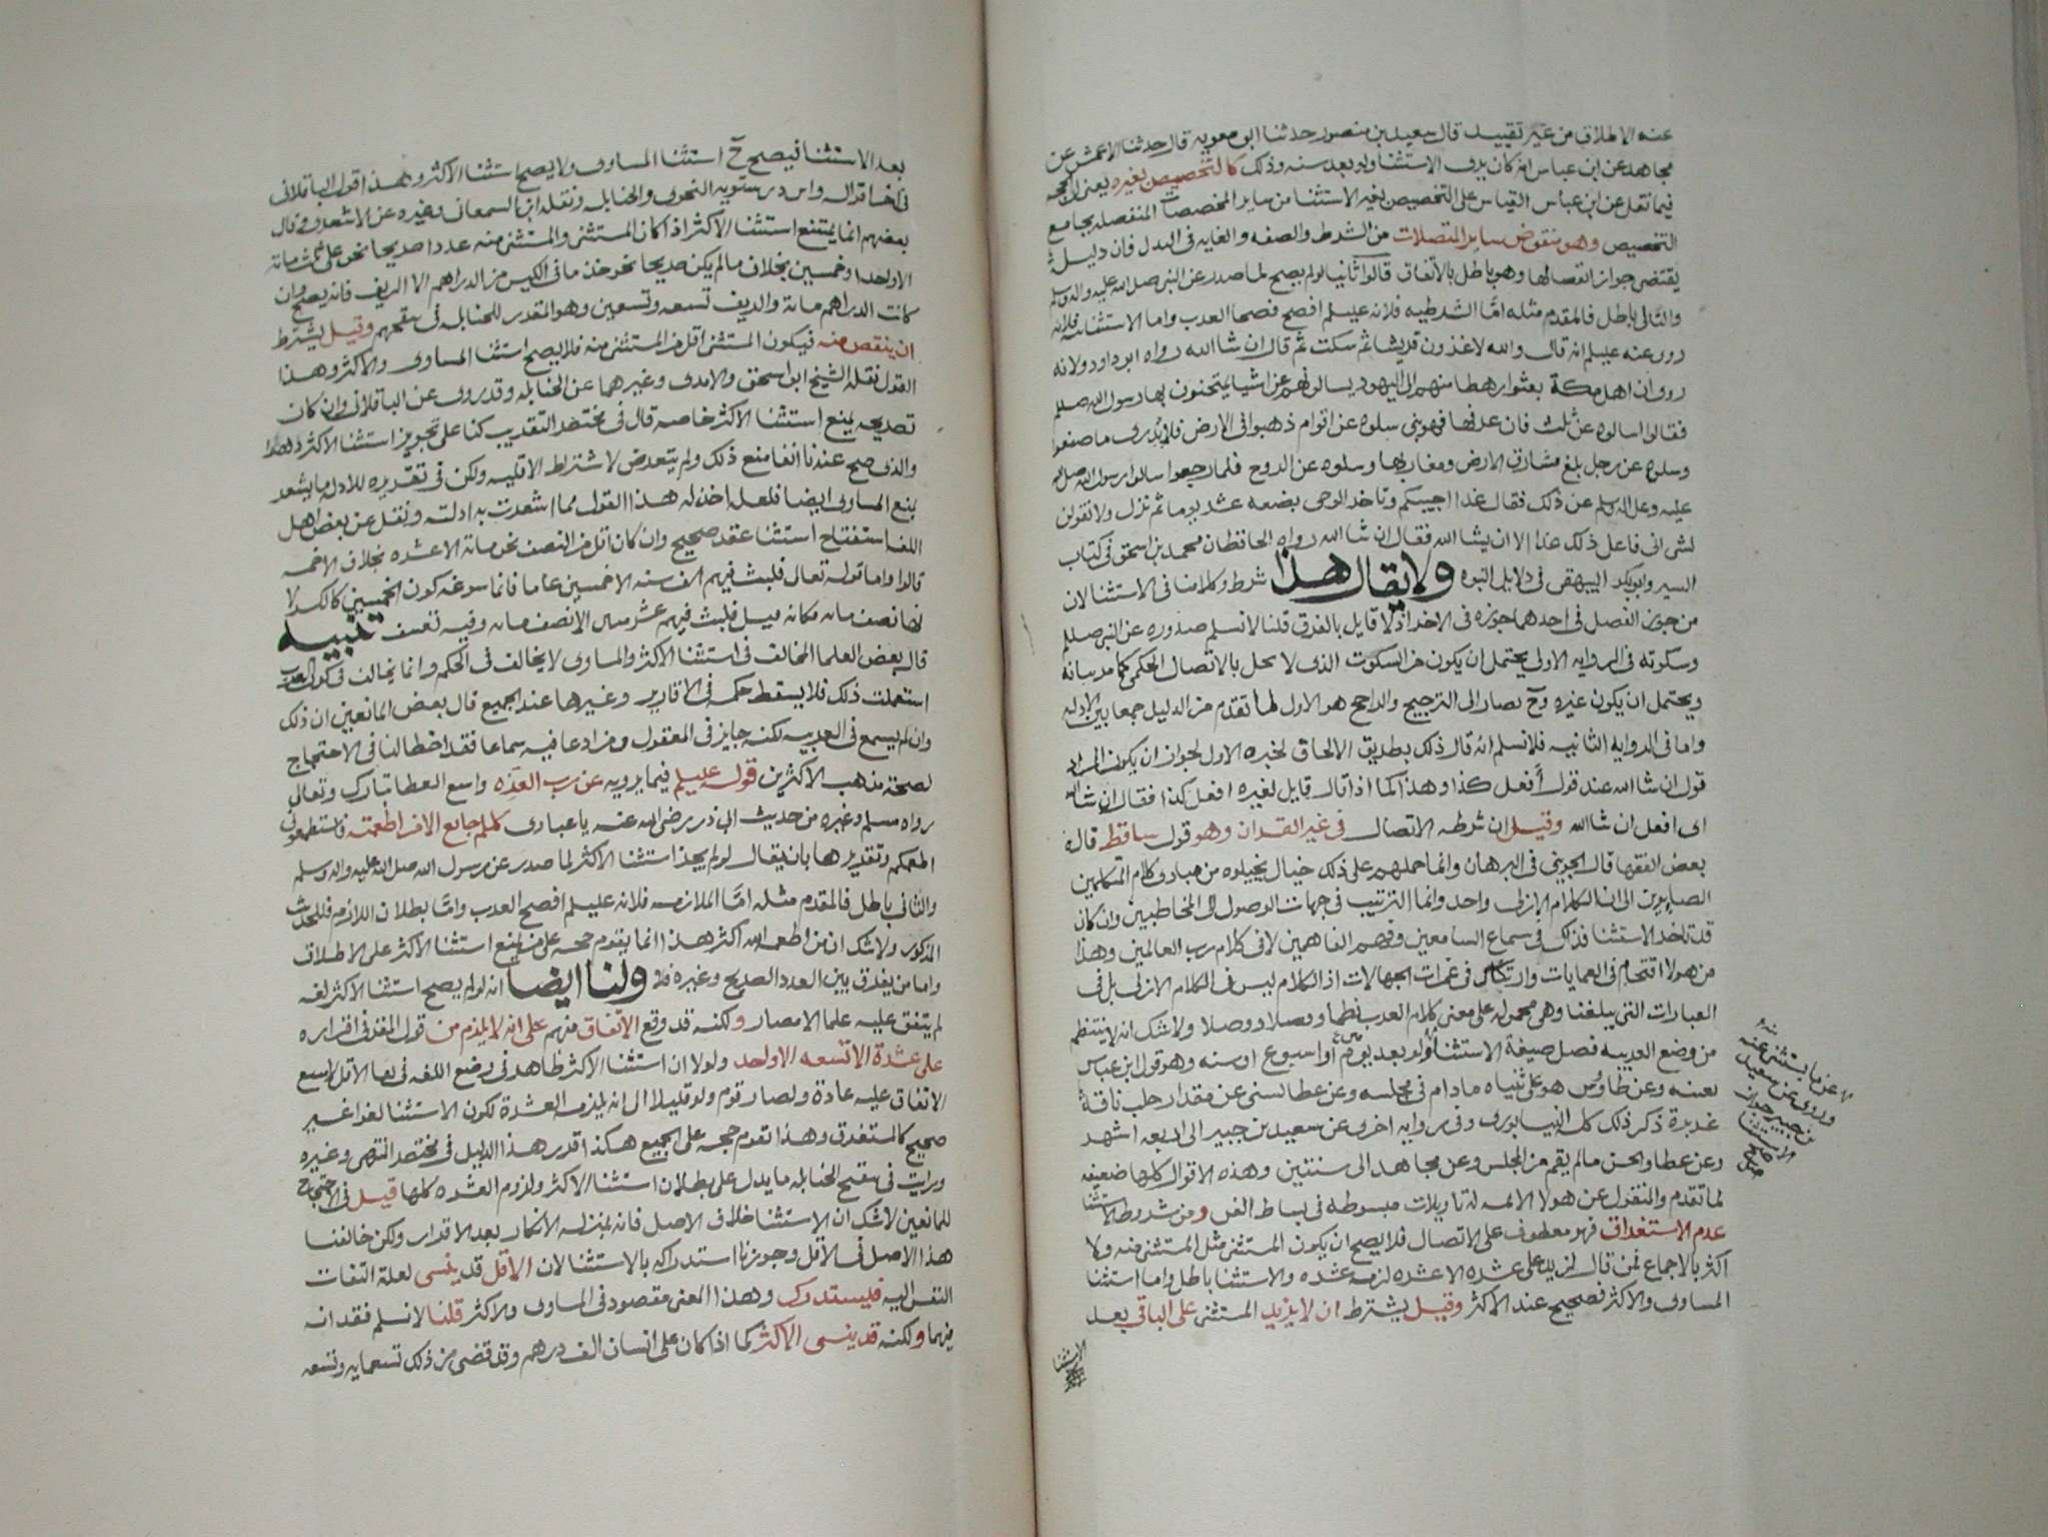 عنه الاطلاق من غير تقييد قال سعيد بن منصور حدثنا ابو معويه قال حدثنا الاعمش عن
مجاهد عن ابن عباس انه كان يرى الاستثنا ولو بعد سنه وذلك كالتخصيص بغيره يعنى ان الحجه
فيما نقل عن ابن عباس القياس على التخصيص بغير الاستثنا من ساير المخصصات المنفصله بجامع
التخصيص وهو منقوض بساير المتصلات من الشرط والصفه والغايه فى البدل فان دليل
يقتضى جواز انفصالها وهو باطل بالاتفاق قالوا ثانيا لو لم يصح لما صدر عن النبي صلى الله عليه واله وسلم
والتالى باطل فالمقدم مثله امّا الشرطيه فلانه عليلم افصح فصحا العرب واما الاستثنائيه فلانه
روى عنه عليلم انه قال والله لاغزون قريشا ثم سكت ثم قال ان شا الله رواه ابو داود ولانه
روى ان اهل مكة بعثوا رهطا منهم الى اليهود يسالونهم عن اشيا يمتحنون بها رسول الله صلم
فقالوا اسالوه عن ثلث فان عرفها فهو نبى سلوه عن اقوام ذهبوا فى الارض فلم يُدرى ما صنعوا
وسلوه عن رجل بلغ مشارق الارض ومغاربها وسلوه عن الروح فلما رجعوا سالوا رسول الله صلى الله
عليه وعلى اله وسلم عن ذلك فقال غدا اجيبكم وتاخر الوحى بضعه عشر يوما ثم نزل ولا تقولن
لشى انى فاعل ذلك غدا الا ان يشا الله فقال ان شا الله رواه الحافظان محمد بن اسحق فى كتاب
السير وابو بكر البيهقى فى دلايل النبوه ولا يقال هذا شرط وكلامنا فى الاستثنا لان
من جوز الفصل فى احدهما جوزه فى الاخر اذ لا قايل بالفرق قلنا لا نسلم صدوره عن النبي صللم
وسكوته فى الروايه الاولى يحتمل ان يكون من السكوت الذى لا يخل بالاتصال الحكمى كما مر بيانه
ويحتمل ان يكون غيره وحَ يصار الى الترجيح والراجح هو الاول لما تقدم من الدليل جمعا بين الادله
واما فى الروايه الثانيه فلا نسلم انه قال ذلك بطريق الالحاق لخبره الاول لجواز ان يكون المراد
قول ان شا الله عند قول أفعل كذا وهذا كما اذا قال قايل لغيره افعل كذا فقال ان شا الله
اى افعل ان شا الله وقيل ان شرطه الاتصال فى غير القران وهو قول ساقط قاله
بعض الفقها قال الجوينى فى البرهان وانما حملهم على ذلك خيال يخيلوه من مبادى كلام المتكلمين
الصايرين الى ان الكلام الازلى واحد وانما الترتيب فى جهات الوصول الى المخاطبين وان كان
قد تاخر الاستثنا فذلك فى سماع السامعين وفهم الفاهمين لا فى كلام رب العالمين وهذا
من هولا اقتحام فى العمايات وارتباك فى غمرات الجهالات اذ الكلام ليس فى الكلام الازلى بل فى
العبارات التى يبلغنا وهى محموله على معنى كلام العرب نظما وفصلا ووصلا ولا شك انه لا ينتظم
من وضع العربيه فصل صيغة الاستثنا ولو بعد يوم او اسبوع او سنه وهو قول ابن عباس
بعينه وعن طاوس هو على ثنياه مادام فى مجلسه وعن عطا يستثنى عن مقدار حلب ناقة
غزيرة ذكر ذلك كله النيسابورى وفى روايه اخرى عن سعيد بن جبير الى اربعه اشهر
وعن عطا والحسن مالم يقم من المجلس وعن مجاهد الى سنتين وهذه الاقوال كلها ضعيفه
لما تقدم والمنقول عن هولا الايمه له تاويلات مبسوطه فى بساط الفن ومن شروط الاستثنا
عدم الاستغراق فهو معطوف على الاتصال فلا يصح ان يكون المستثنى مثل المستثنى منه ولا
اكثر بالاجماع فمن قال لزيد على عشره الا عشره لزمه عشره والاستثنا باطل واما استثنا
المساوى والاكثر فصحيح عند الاكثر وقيل يشترط ان لا يزيد المستثنى على الباقى بعد
الاستثنا
وروى عن سعيد
بن جبير جواز
الاستثنا
بعد الاستثنا فيصح حَ استثنا المساوى ولا يصح استثنا الاكثر وبهذا قول الباقلانى
فى اخر اقواله وابن درستويه النحوى والحنابله ونقله ابن السمعانى وغيره عن الاشعرى وقال
بعضهم انما يمتنع استثنا الاكثر اذا كان المستثنى والمستثنى منه عددا صريحا نحو على مائه
الا واحدا وخمسين بخلاف مالم يكن صريحا نحو خذ ما فى الكيس من الدراهم الا الزيف فانه يصح وان
كانت الدراهم مائة والزيف تسعه وتسعين وهو المقدر للحنابله فى مقنعهم وقيل يشترط
ان ينقص منه فيكون المستثنى اقل من المستثنى منه فلا يصح استثنا المساوى والاكثر وهذا
القول نقله الشيخ ابو اسحق والامدى وغيرهما عن الحنابله وقد روى عن الباقلانى وان كان
تصريحه يمنع استثنا الاكثر خاصه قال فى مختصر التقريب كنا على تجويز استثنا الاكثر دهرا
والذى صح عندنا انفا منع ذلك ولم يتعرض لاشتراط الاقليه ولكن فى تقريره للادله ما يشعر
بمنع المساوى ايضا فلعله اخذ له هذا القول مما اشعرت به ادلته ونقل عن بعض اهل
اللغه استقباح استثنا عقد صحيح وان كان اقل من النصف نحو مائه الا عشره بخلاف الا خمسه
قالوا واما قوله تعالى فلبث فيهم الف سنه الا خمسين عاما فانما سوغه كون الخمسين كالكسر لا
نها نصف مائه فكانه قيل فلبث فيهم عشر مئين الا نصف مائه وفيه تعسف تنبيه
قال بعض العلما المخالف فى استثنا الاكثر والمساوى لا يخالف فى الحكم وانما يخالف فى كون العرب
استعملت ذلك فلا يسقط حكمه فى الاقارير وغيرها عند الجميع قال بعض المانعين ان ذلك
وان لم يسمع فى العربيه لكنه جايز فى المعقول ومن ادعا فيه سماعا فقد اخطا لنا فى الاحتجاج
لصحة مذهب الاكثرين قوله عليلم فيما يرويه عن رب العزه واسع العطا تبارك وتعالى
رواه مسلم وغيره من حديث ابى ذر رضى الله عنه يا عبادى كلكم جايع الا من اطعمته فاستطعمونى
اطعمكم وتقديرها بان يقال لو لم يجز استثنا الاكثر لما صدر عن رسول الله صلى الله عليه واله وسلم
والثانى باطل فالمقدم مثله امّا الملازمه فلانه عليلم افصح العرب وامّا بطلان اللازم فللحديث
المذكور ولا شك ان من اطعم الله اكثر هذا انما يقوم حجه على من يمنع استثنا الاكثر على الاطلاق
واما من يفرق بين العدد الصريح وغيره فلا ولنا ايضا انه لو لم يصح استثنا الاكثر لغه
لم يتفق عليه علما الامصار ولكنه قد وقع الاتفاق منهم على انه لا يلزم من قول المقر فى اقراره
على عشرة الا تسعه الا واحد ولولا ان استثنا الاكثر ظاهر فى وضع اللغه فى بقا الاقل لامتنع
الاتفاق عليه عادة ولصار قوم ولو قليلا الى انه يلزمه العشرة لكون الاستثنا لغوا غير
صحيح كالمستغرق وهذا تقوم حجه على الجميع هكذا قرر هذا الدليل فى مختصر المنتهى وغيره
ورايت فى مقنع الحنابله ما يدل على بطلان استثنا الاكثر ولزوم العشره كلها قيل فى الاحتجاج
للمانعين لا شك ان الاستثنا خلاف الاصل فانه بمنزلة الانكار بعد الاقرار ولكن خالفنا
هذا الاصل فى الاقل وجوزنا استدراكه بالاستثنا لان الاقل قد ينسى لعلة التفات
النفس اليه فيستدرك وهذا المعنى مفقود فى المساوى والاكثر قلنا لا نسلم فقدانه
فيهما ولكنه قد ينسى الاكثر كما اذا كان على انسان الف درهم وقد قضى من ذلك تسعمايه وتسعه